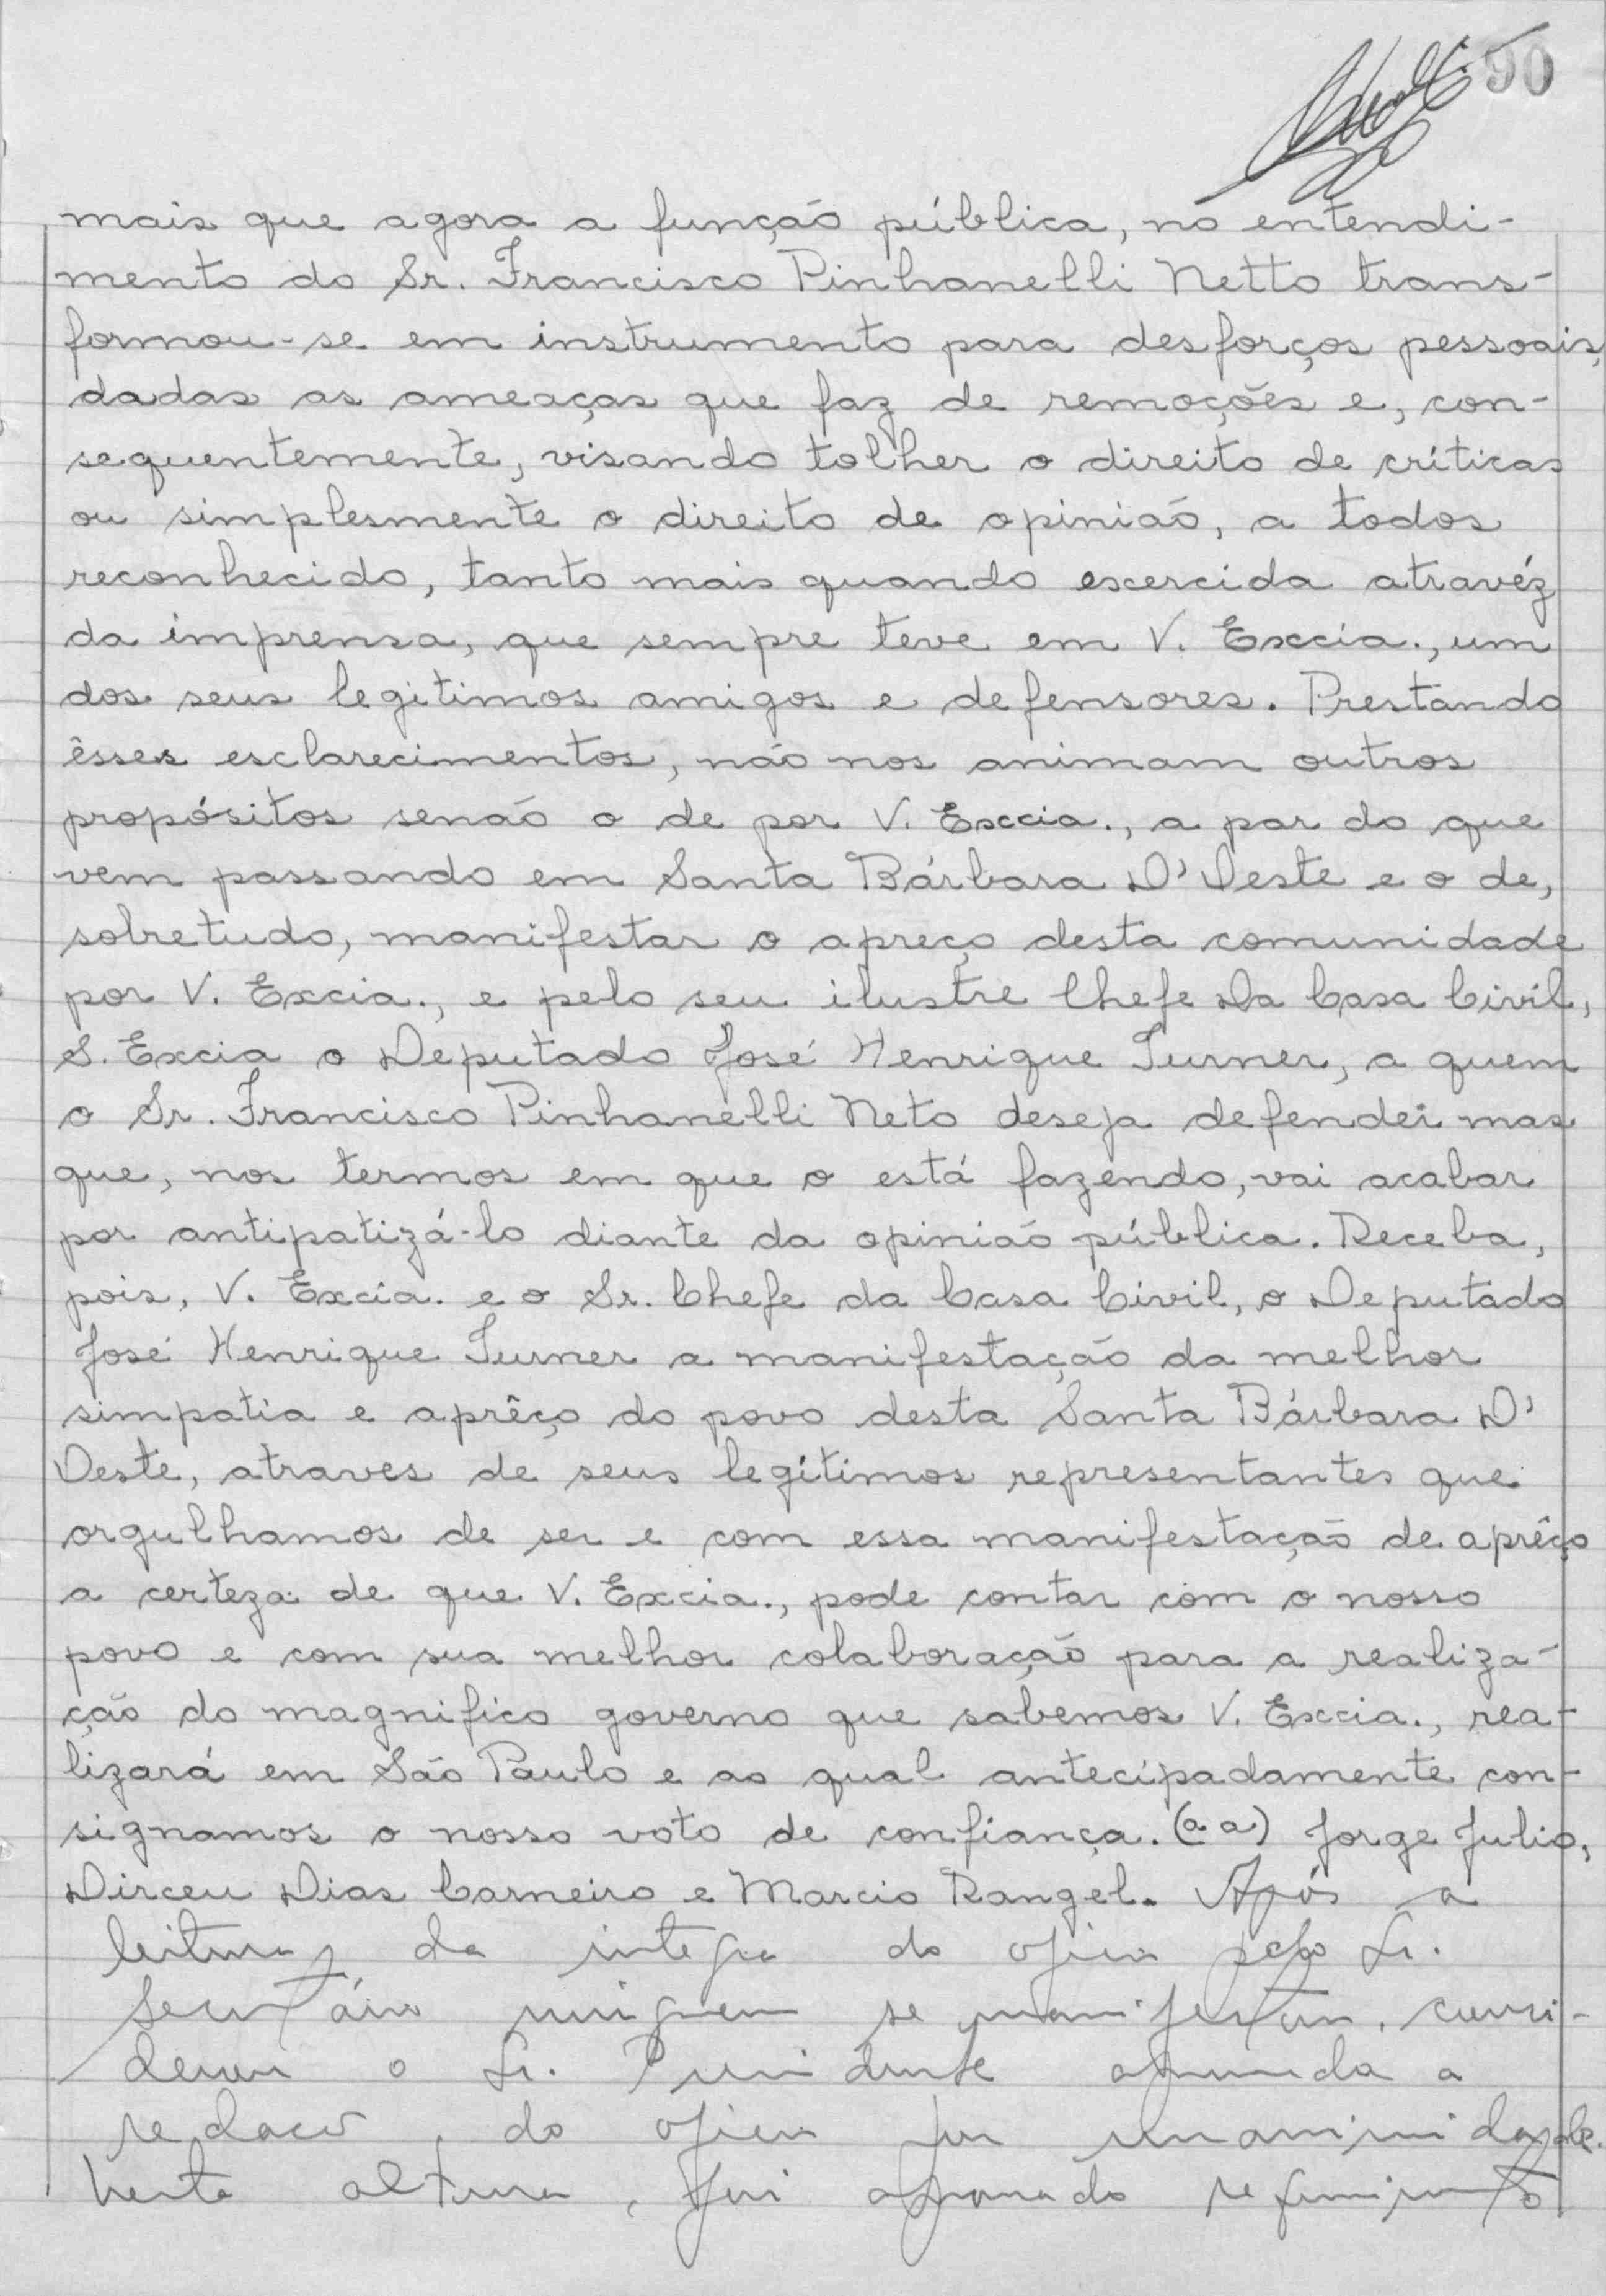 90
mais que agora a função pública, no entendi-
mento do Sr. Francisco Pinhanelli Netto trans-
formou-se em instrumento para desforços pessoais,
dadas as ameaças que faz de remoções e, con-
sequentemente, visando tolher o direito de críticas
ou simplesmente o direito de opinião, a todos
reconhecido, tanto mais quando excercida atravéz
da imprensa, que sempre teve em V. Exccia., um
dos seus legitimos amigos e defensores. Prestando
êsses esclarecimentos, não nos animam outros
propósitos senão o de por V. Exccia., a par do que
vem passando em Santa Bárbara D'Oeste e o de,
sobretudo, manifestar o apreço desta comunidade
por V. Excia., e pelo seu ilustre Chefe Da Casa Civil,
S. Excia o Deputado José Henrique Turner, a quem
o Sr. Francisco Pinhanelli Neto deseja defender mas
que, nos termos em que o está fazendo, vai acabar
por antipatizá-lo diante da opinião pública. Receba,
pois, V. Excia. e o Sr. Chefe da Casa Civil, o Deputado
José Henrique Turner a manifestação da melhor
simpatia e aprêço do povo desta Santa Bárbara D'
Oeste, atraves de seus legítimos representantes que
orgulhamos de ser e com essa manifestação de aprêço
a certeza de que V. Excia., pode contar com o nosso
povo e com sua melhor colaboração para a realiza-
ção do magnifico governo que sabemos V. Exccia., rea-
lizará em São Paulo e ao qual antecipadamente con-
signamos o nosso voto de confiança. (a a) Jorge Julio,
Dirceu Dias Carneiro e Marcio Rangel. Após a
leitura, da integra do oficio pelo Sr.
Secretário ninguem se manifestou, consi-
derou o Sr. Presidente aprovada a
redação, do oficio por unanimidade.
Nesta altura, foi aprovado requerimento